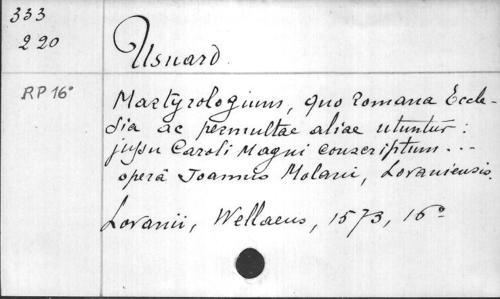 333
220
Usuard.
RP 16°
Martyrologium, quo Romana Eccle-
sia ac permultae aliae utuntur:
jussu Caroli Magni conscriptum...
operâ Joannis Molani, Lovaniensis.
Lovanii, Wellaeus, 1573, 16°